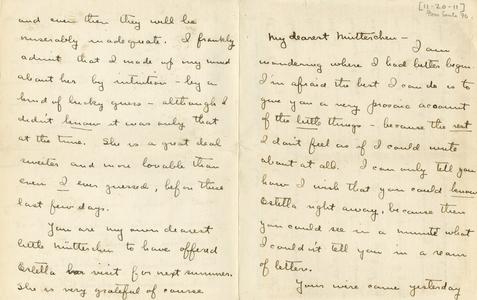 [11-20-11]
My dearest Mütterchen –
I am
wondering where I had better begin.
I'm afraid the best I can do is to
give you a very prosaic account
of the little things – because the rest
I don't feel as if I could write
about at all. I can only tell you
how I wish that you could know
Estella right away, because then
you could see in a minute what
I couldn't tell you in a ream
of letters.
Your wire came yesterday
and even then they will be
miserably inadequate. I frankly
admit that I made up my mind
about her by intuition – by a
kind of lucky guess – although I
didn't know it was only that
at the time. She is a great deal
sweeter and more lovable than
even I ever guessed, before these
last few days.
You are my own dearest
little Mütterchen to have offered
Estella her visit for next summer.
She is very grateful of course